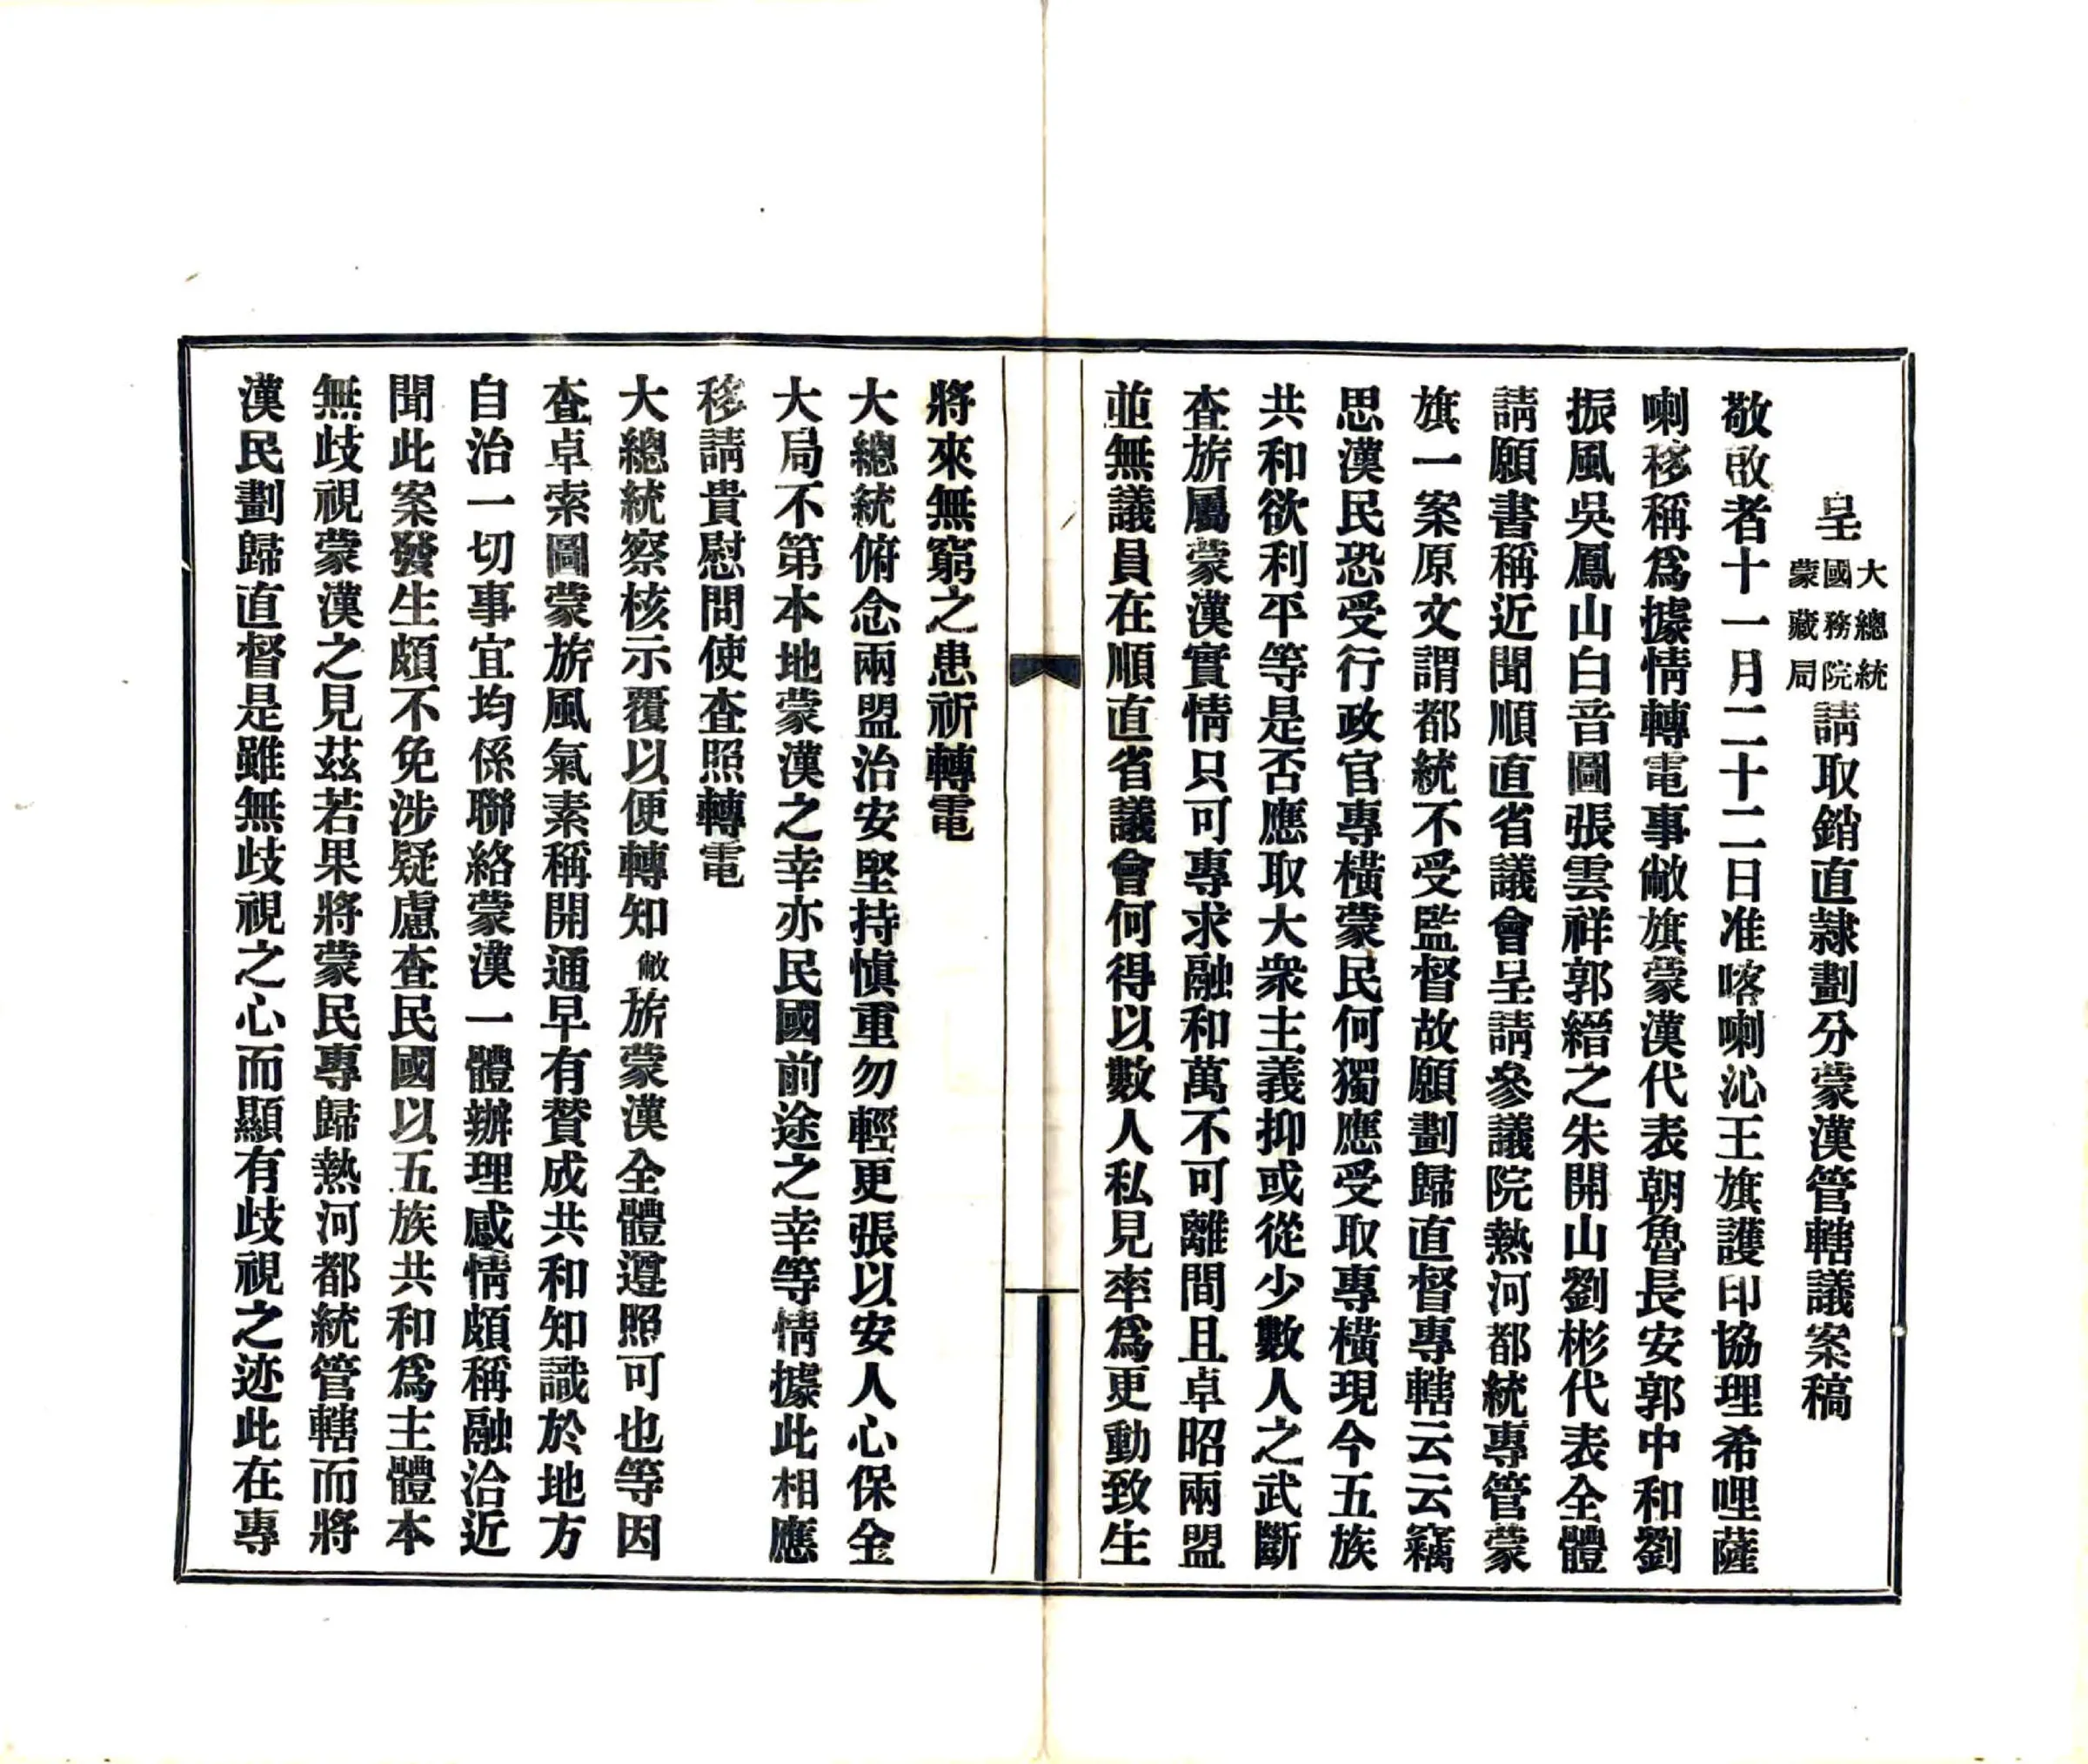 呈大總統國務院蒙藏局請取銷直隷劃分蒙漢管轄議案稿
敬啟者十一月二十二日准喀喇沁王旗護印協理希哩薩
喇移稱爲據情轉電事敝旗蒙漢代表朝魯長安郭中和劉
振風吳鳳山白音圖張雲祥郭縉之朱開山劉彬代表全體
請願書稱近聞順直省議會呈請參議院熱河都統專管蒙
旗一案原文謂都統不受監督故願劃歸直督專轄云云竊
思漢民恐受行政官專橫蒙民何獨應受取專橫現今五族
共和欲利平等是否應取大衆主義抑或從少數人之武斷
查旂屬蒙漢實情只可專求融和萬不可離間且卓昭兩盟
並無議員在順直省議會何得以數人私見率爲更動致生
將來無窮之患祈轉電
大總統俯念兩盟治安堅持愼重勿輕更張以安人心保全
大局不第本地蒙漢之幸亦民國前途之幸等情據此相應
移請貴慰問使查照轉電
大總統察核示覆以便轉知敝旂蒙漢全體遵照可也等因
查卓索圖蒙旂風氣素稱開通早有贊成共和知識於地方
自治一切事宜均係聯絡蒙漢一體辦理感情頗稱融洽近
聞此案發生頗不免涉疑慮查民國以五族共和爲主體本
無歧視蒙漢之見茲若果將蒙民專歸熱河都統管轄而將
漢民劃歸直督是雖無歧視之心而顯有歧視之迹此在專